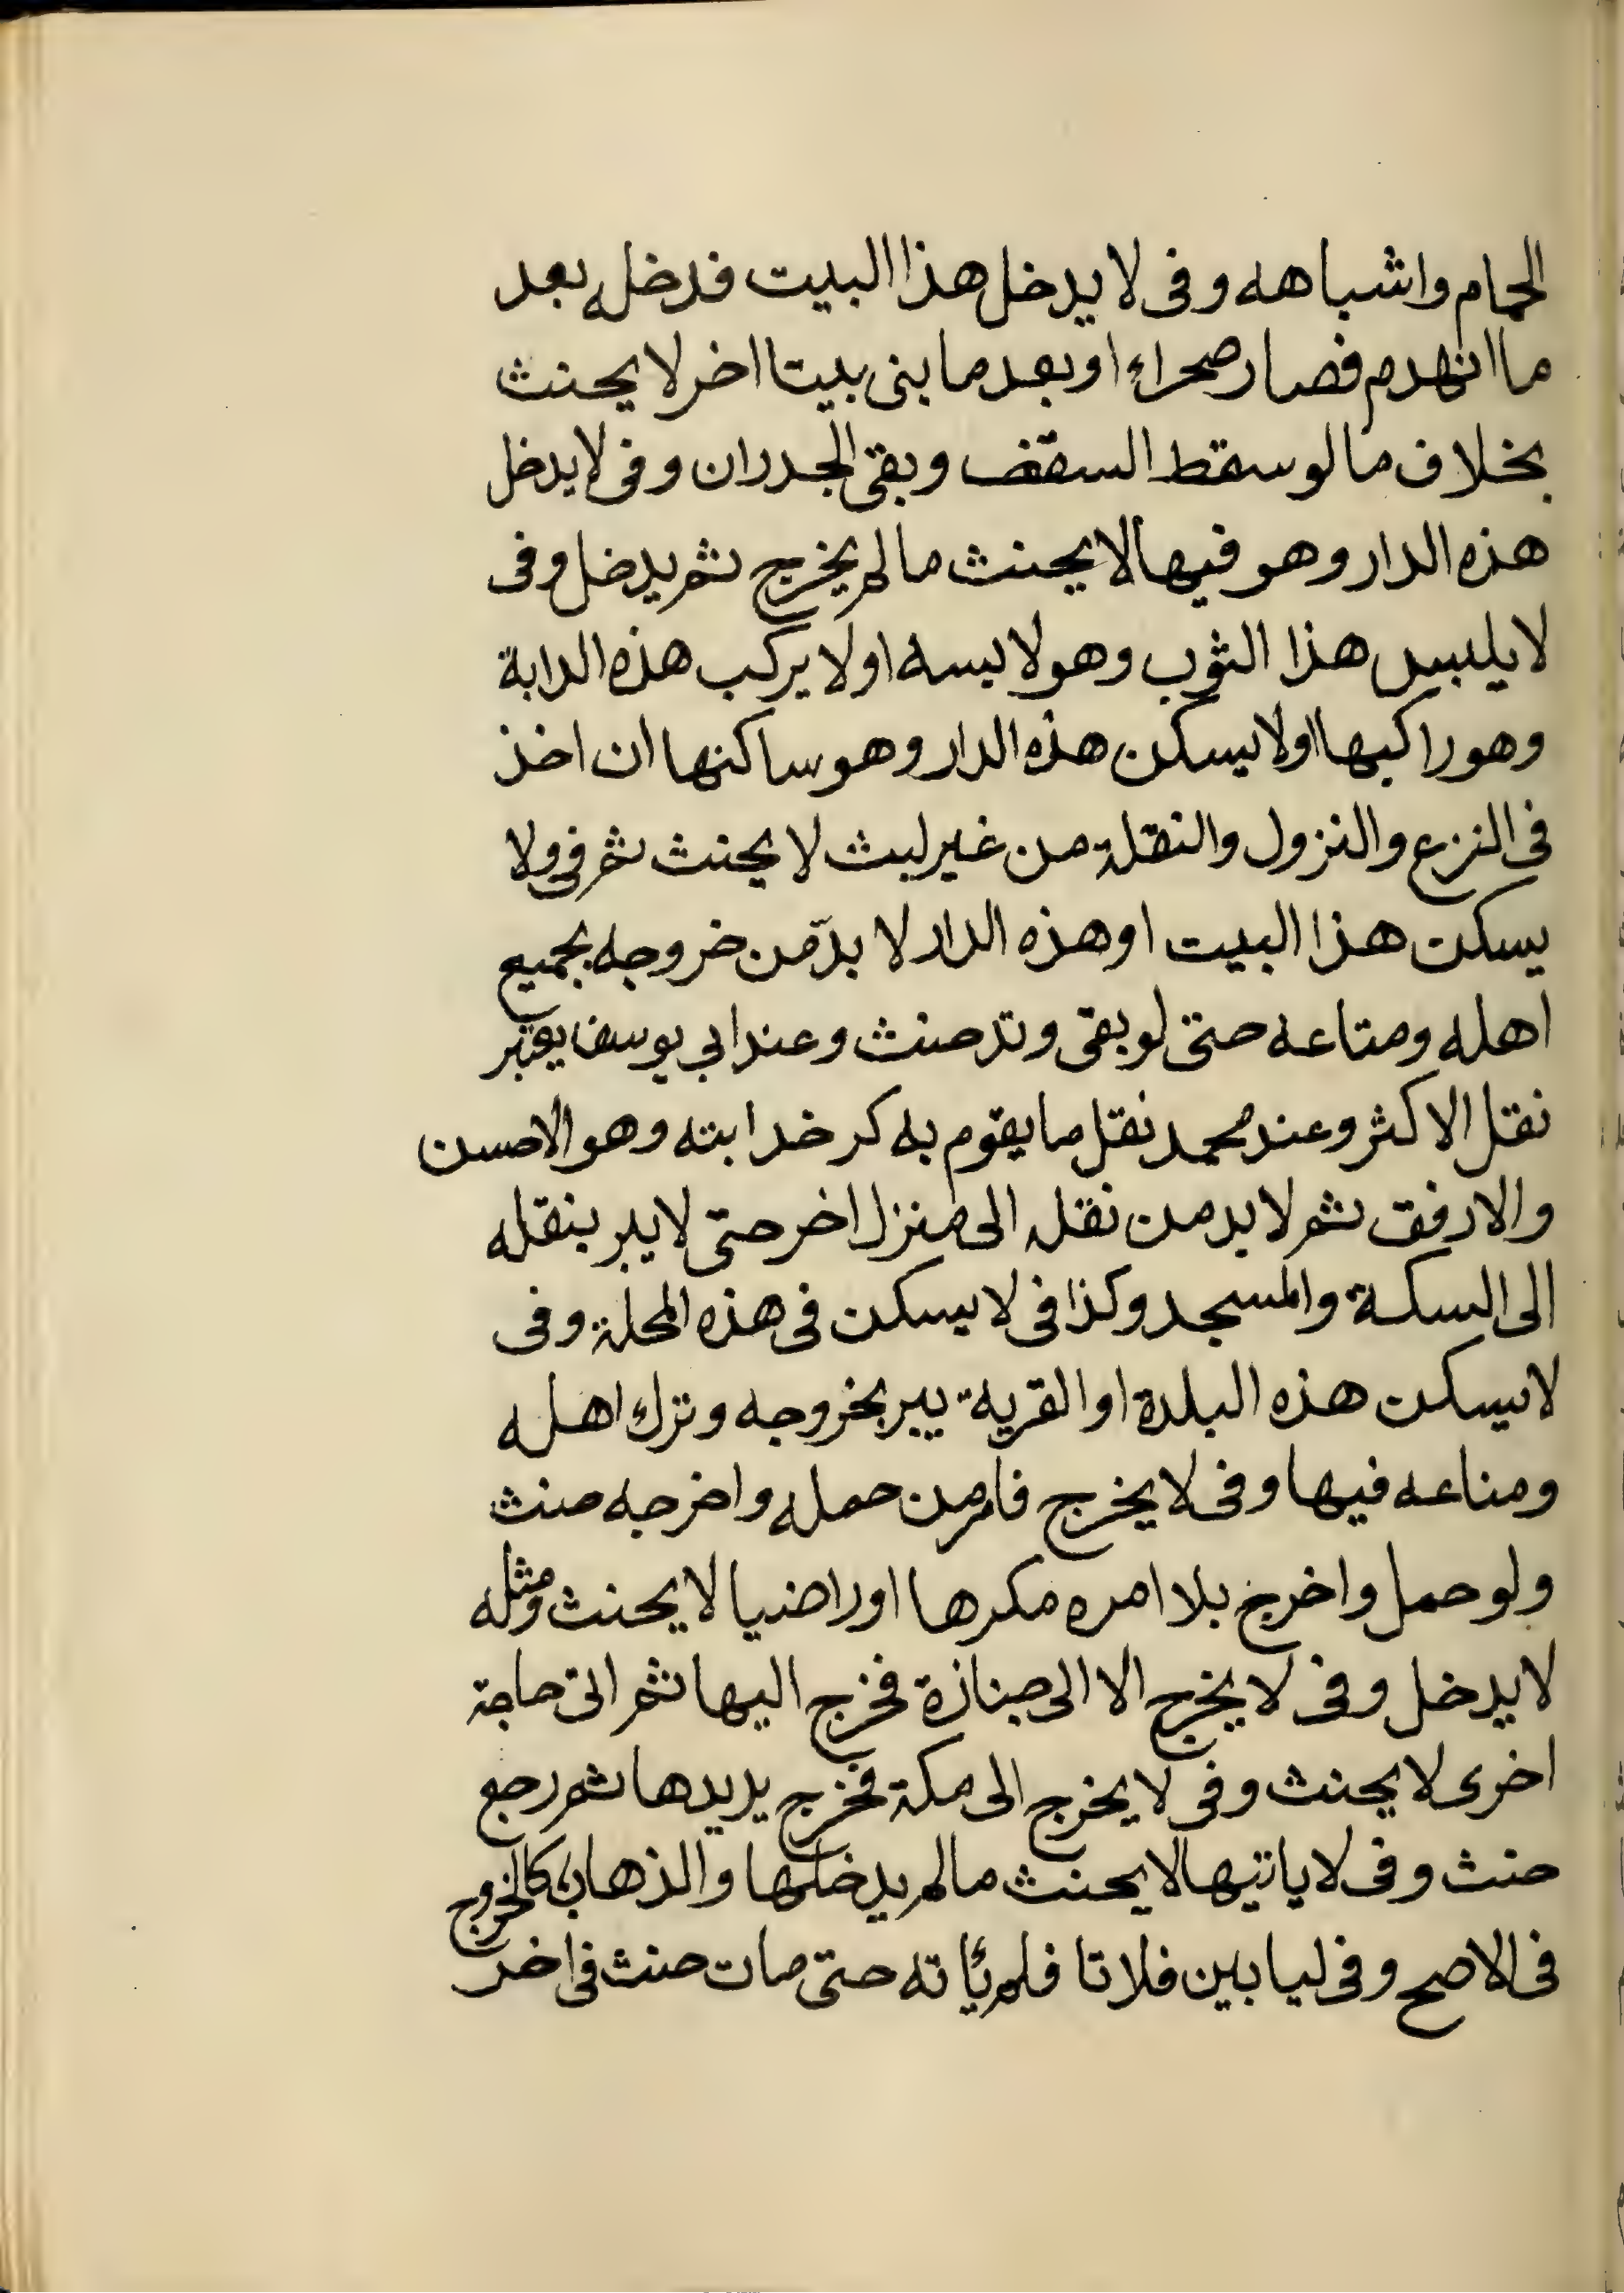 الحمام واشباهه وفى لا يدخل هذا البيت فدخله بعد
ما انهدم فصار صحراء او بعد ما بنى بيتا اخر لا يحنث
بخلاف ما لو سقط السقف وبقى الجدران وفى لا يدخل
هذه الدار وهو فيها لا يحنث ما لم يخرج ثم يدخل وفى
لا يلبس هذا الثوب وهو لابسه او لا يركب هذه الدابة
وهو راكبها او لا يسكن هذه الدار وهو ساكنها ان اخذ
فى النزع والنزول والنقلة من غير لبث لا يحنث ثم فى ولا
يسكن هذا البيت او هذه الدار لا بدّ من خروجه بجميع
اهله ومتاعه حتى لو بقى وتد حنث وعند ابي يوسف يعتبر
نقل الاكثر وعند محمد نقل ما يقوم به كدخدابته وهو الاحسن
والارفق ثم لا بد من نقله الى منزل اخر حتى لا يبر بنقله
الى السكة والمسجد وكذا فى لا يسكن فى هذه المحلة وفى
لا يسكن هذه البلدة او القرية يبر بخروجه وترك اهله
ومتاعه فيها وفى لا يخرج فامر من حمله واخرجه حنث
ولو حمل واخرج بلا امره مكرها او راضيا لا يحنث ومثله
لا يدخل وفى لا يخرج الا الى جنازة فخرج اليها ثم اتى حاجة
اخرى لا يحنث وفى لا يخرج الى مكة فخرج يريدها ثم رجع
حنث وفى لا ياتيها لا يحنث ما لم يدخلها والذهاب كالخروج
فى الاصح وفى ليابين فلانا فلم يأته حتى مات حنث فى اخر